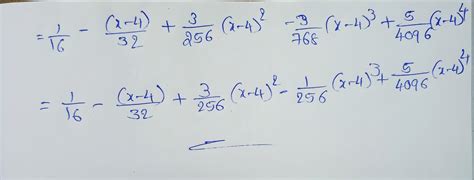 = 1/16 - (x-4)/32 + 3/256 (x-4)^2 - 3/768 (x-4)^3 + 5/4096 (x-4)^4
= 1/16 - (x-4)/32 + 3/256 (x-4)^2 - 1/256 (x-4)^3 + 5/4096 (x-4)^4